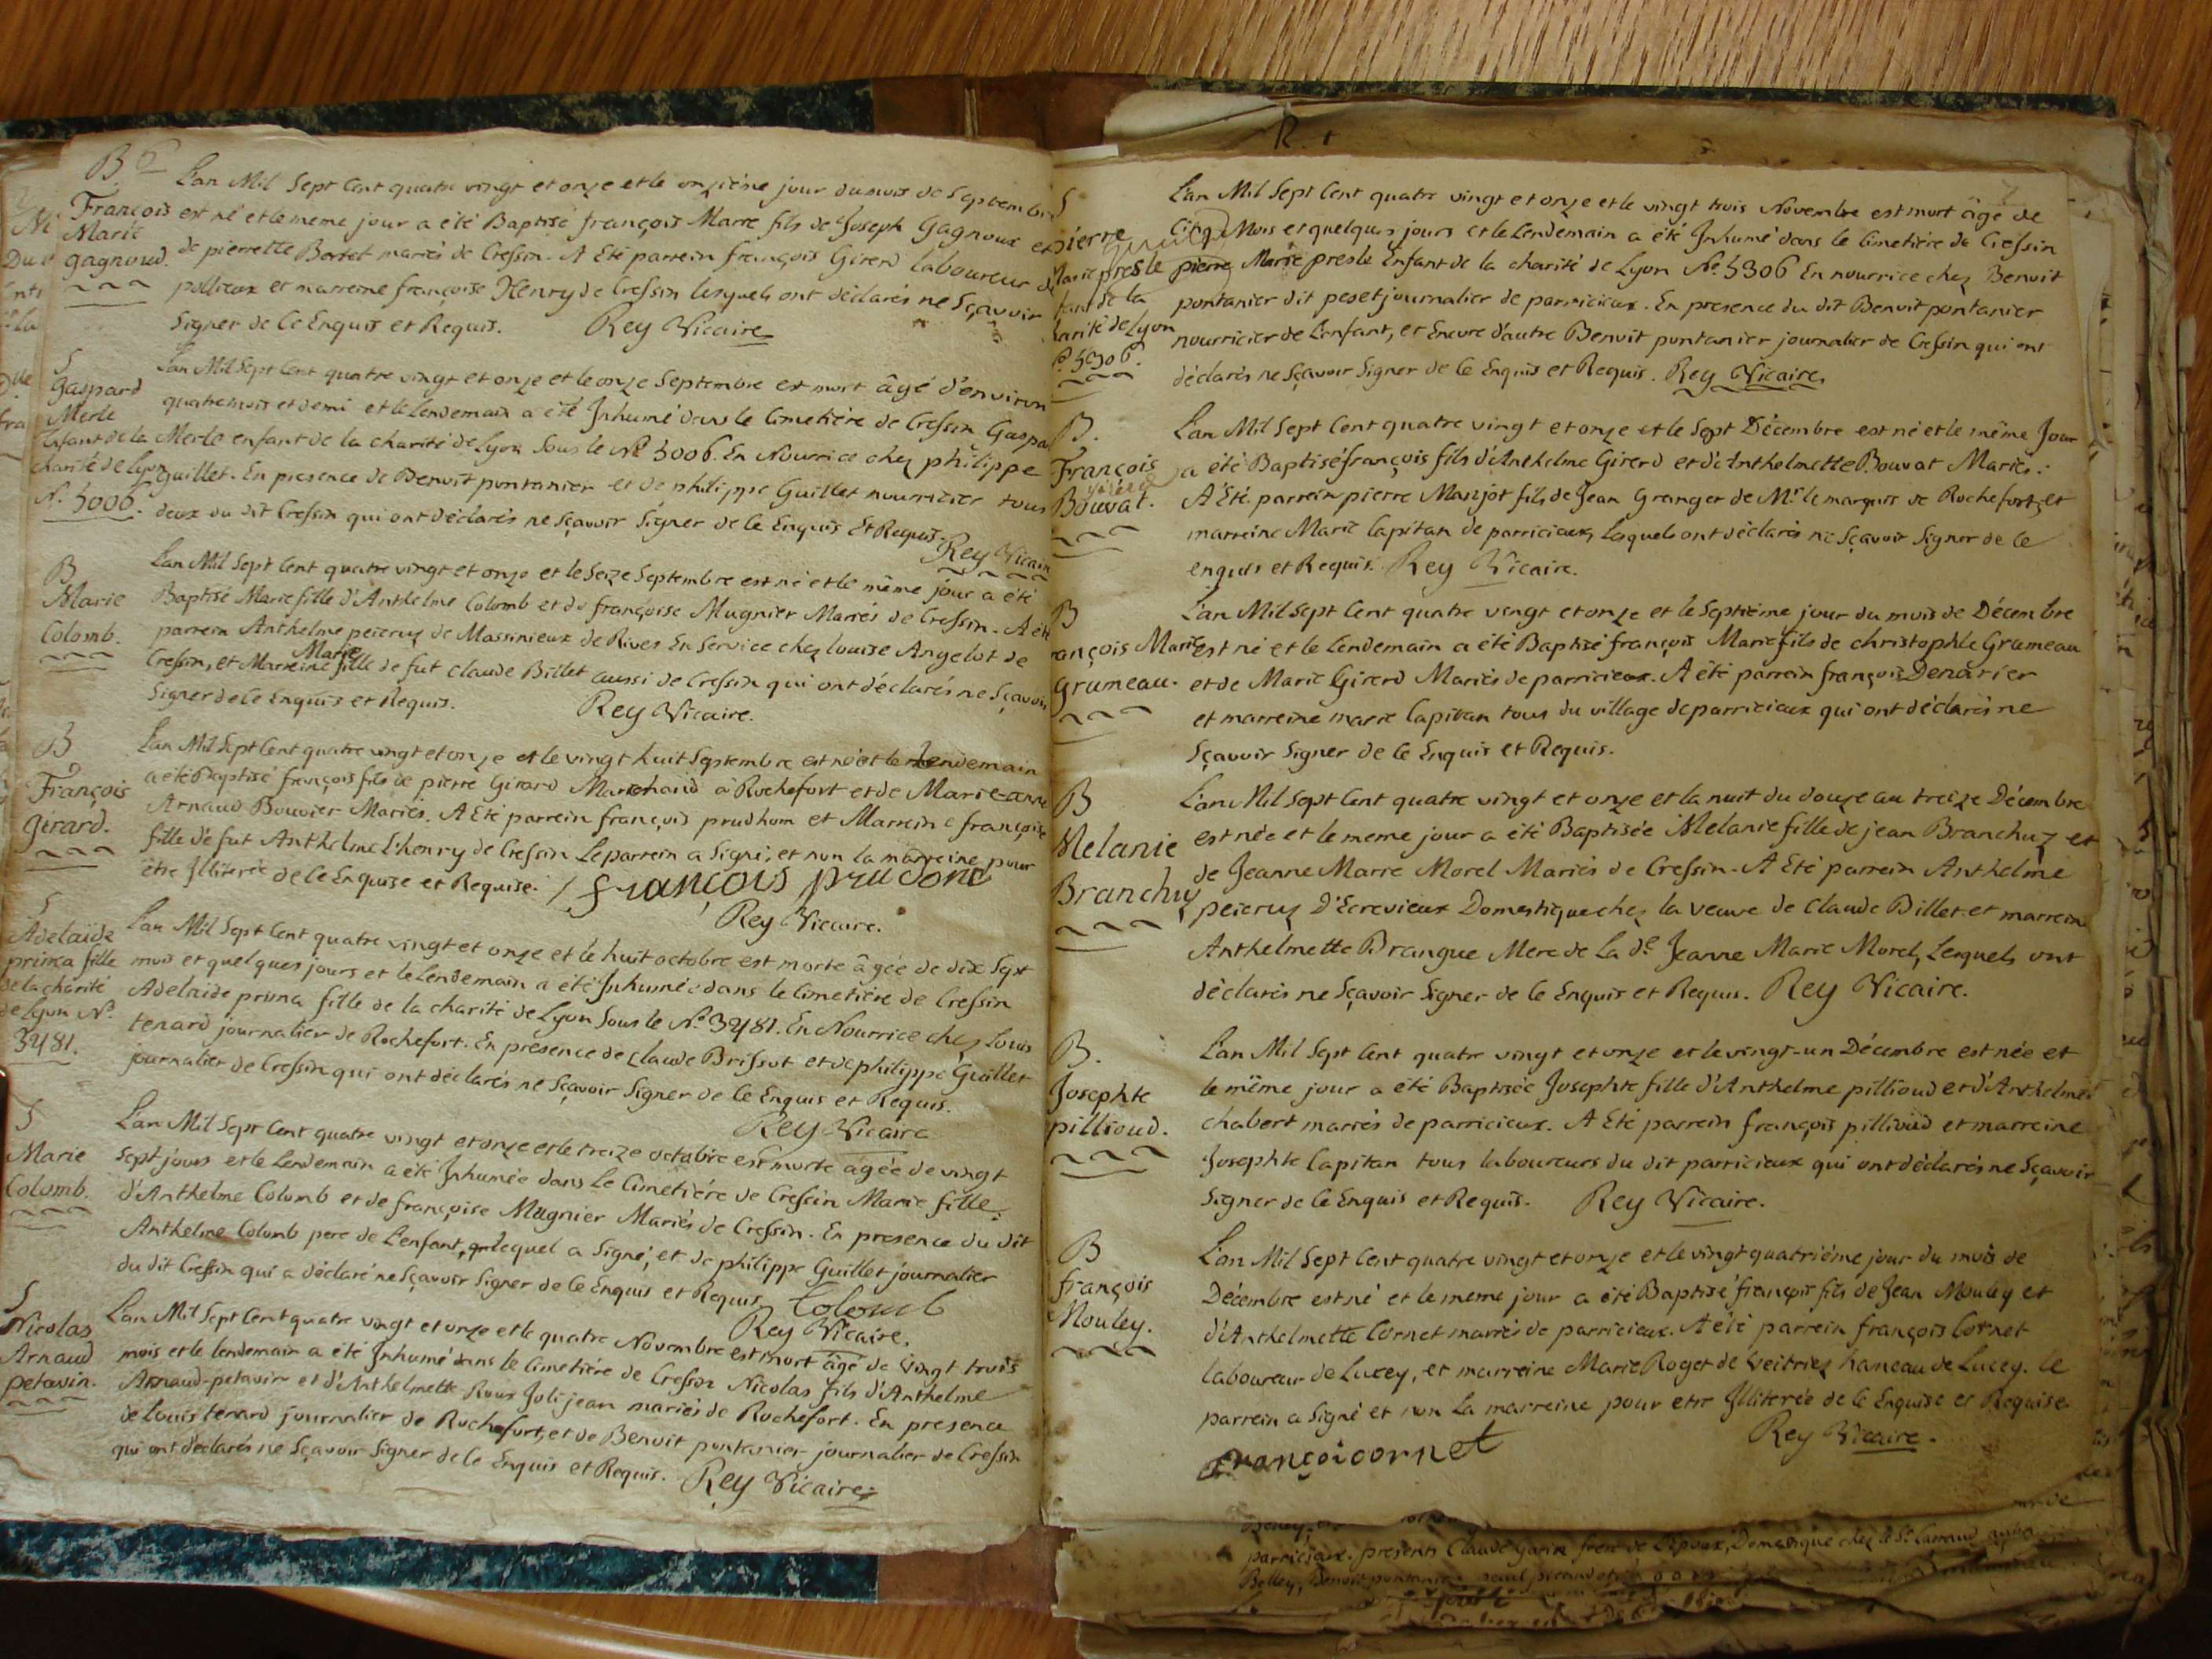 B
François
Marie
gagnoud.
L'an Mil Sept Cent quatre vingt et onze et le onziéme jour du mois de Septembre
est né et le meme jour a été Baptisé françois Marie fils de Joseph Gagnoux et
de pierrette Bertet mariés de Cressin. A Eté parrein françois Girerd laboureur de
pollieux et marreine françoise Henry de Cressin lesquels ont déclarés ne Sçavoir
Signer de Ce Enquis et Requis. Rey Vicaire
S
Gaspard
Merle
Enfant de la
charité de Lyon
N.º 5006.
L'an Mil Sept Cent quatre vingt et onze et le onze Septembre est mort âgé d'environ
quatre mois et demi et le Lendemain a été Inhumé dans le Cimetiére de Cressin Gaspa
Merle enfant de la charité de Lyon Sous le Nº 5006. En Nourrice chez philippe
guillet. En presence de Benoit pontanier et de philippe Guillet nourricier tous
deux du dit Cressin qui ont déclarés ne Sçavoir Signer de Ce Enquis Et Requis.
Rey Vicaire
B
Marie
Colomb.
L'an Mil Sept Cent quatre vingt et onze et le Seize Septembre est né et le même jour a été
Baptisé Marie fille d'Anthelme Colomb et de françoise Mugnier Mariés de Cressin. A été
parrein Anthelme peicruz de Massinieux de Rives En Service chez Louise Angelot de
Cressin, et Marreine Marie fille de fut Claude Billet aussi de Cressin qui ont déclarés ne Sçavoir
Signer de Ce Enquis et Requis. Rey Vicaire.
B
François
Girard.
L'an Mil Sept Cent quatre vingt et onze et le vingt huit Septembre est né et le Lendemain
a été Baptisé françois fils de pierre Girard Marchand à Rochefort et de Marie anne
Arnaud Bouvier Mariés. A Eté parrein françois prudhom et Marreine françoise
fille de fut Anthelme L'henry de Cressin Le parrein a Signé, et non la marreine pour
être Illiterée de Ce Enquise et Requise. françois prudont
Rey Vicaire.
S
Adelaïde
prima fille
de la charité
de Lyon Nº
3481.
L'an Mil Sept Cent quatre vingt et onze et le huit octobre est morte âgée de dix Sept
mois et quelques jours et le Lendemain a été Inhumée dans le Cimetiére de Cressin
Adelaide prima fille de la charité de Lyon Sous le Nº 3481. En Nourrice chez Louis
tenard journalier de Rochefort. En présence de Claude Brissot et de philippe Guillet
journalier de Cressin qui ont déclarés ne Sçavoir Signer de Ce Enquis et Requis.
Rey Vicaire
S
Marie
Colomb.
L'an Mil Sept Cent quatre vingt et onze et le treize octobre est morte agée de vingt
Sept jours et le Lendemain a été Inhumée dans Le Cimetiére de Cressin Marie fille
d'Anthelme Colomb et de françoise Mugnier Mariés de Cressin. En presence du dit
Anthelme Colomb pere de L'enfant, lequel a Signé, et de philippe Guillet journalier
du dit Cressin qui a déclaré ne Sçavoir Signer de Ce Enquis et Requis. Colomb
Rey Vicaire.
S
Nicolas
Arnaud
petavin.
L'an Mil Sept Cent quatre vingt et onze et le quatre Novembre est mort âgé de vingt trois
mois et le lendemain a été Inhumé dans le Cimetiére de Cressin Nicolas fils d'Anthelme
Arnaud-petavin et d'Anthelmette Roux Joli jean mariés de Rochefort. En presence
de Louis tenard journalier de Rochefort, et de Benoit pontanier journalier de Cressin
qui ont déclarés ne Sçavoir Signer de Ce Enquis et Requis. Rey Vicaire
S
pierre
Marie presle
fant de la
harité de Lyon
Nº 5306.
L'an Mil Sept Cent quatre vingt et onze et le vingt trois Novembre est mort âgé de
Cinq Mois et quelques jours et le Lendemain a été Inhumé dans le Cimetiére de Cressin
pierre Marie presle Enfant de la charité de Lyon Nº 5306 En nourrice chez Benoit
pontanier dit peset journalier de parricieux. En presence du dit Benoit pontanier
nourricier de L'enfant, et Encore d'autre Benoit pontanier journalier de Cressin qui ont
déclarés ne Sçavoir Signer de Ce Enquis et Requis. Rey Vicaire
B.
François
girerd
Bouvat.
L'an Mil Sept Cent quatre vingt et onze et le Sept Décembre est né et le même Jour
a été Baptisé françois fils d'Anthelme Girerd et d'Anthelmette Bouvat Mariés.
A Eté parrein pierre Marjot fils de Jean Granger de Mr le marquis de Rochefort, et
marreine Marie Capitan de parricieux, Lesquels ont déclarés ne Sçavoir Signer de Ce
enquis et Requis. Rey Vicaire.
B
ançois Marie
Grumeau.
L'an Mil Sept Cent quatre vingt et onze et le Septiéme jour du mois de Décembre
est né et le Lendemain a été Baptisé françois Marie fils de christophle Grumeau
et de Marie Girerd Mariés de parricieux. A été parrein françois Denarier
et marreine marie Capitan tous du village de parricieux qui ont déclarés ne
Sçavoir Signer de Ce Enquis et Requis.
B
Melanie
Branchuz
L'an Mil Sept Cent quatre vingt et onze et la nuit du douze au treize Décembre
est née et le meme jour a été Baptisée Melanie fille de jean Branchuz et
de Jeanne Marie Morel Mariés de Cressin. A Eté parrein Anthelme
peicruz D'Ecrevieux Domestique chez la veuve de Claude Billet et marreine
Anthelmette Brangue Mere de la de Jeanne Marie Morel, Lesquels ont
déclarés ne Sçavoir Signer de Ce Enquis et Requis. Rey Vicaire.
B.
Josephte
pillioud.
L'an Mil Sept Cent quatre vingt et onze et le vingt-un Décembre est née et
le même jour a été Baptisée Josephte fille d'Anthelme pillioud et d'Anthelme
chabert mariés de parricieux. A Eté parrein françois pillioud et marreine
Josephte Capitan tous laboureurs du dit parricieux qui ont déclarés ne Sçavoir
Signer de Ce Enquis et Requis. Rey Vicaire.
B
françois
Mouley.
L'an Mil Sept Cent quatre vingt et onze et le vingt quatriéme jour du mois de
Décembre est né et le meme jour a été Baptisé françois fils de Jean Mouley et
d'Anthelmette Cornet mariés de parricieux. A été parrein françois Cornet
laboureur de Lucey, et marreine Marie Roget de Veitriez hameau de Lucey. le
parrein a Signé et non La marreine pour etre Illiterée de Ce Enquise et Requise
Rey Vicaire.
françoi cornet
parricieux. présents Claude garin frere de L'Epoux, Domestique chez le Sr
Belley, Benoit pontanier